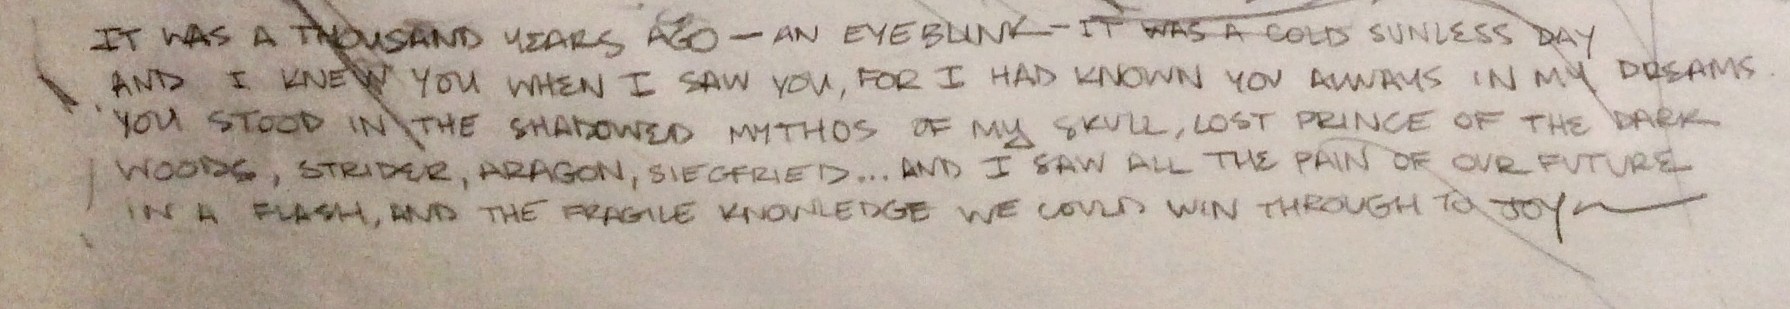 IT WAS A THOUSAND YEARS AGO — AN EYEBLINK — IT WAS A COLD SUNLESS DAY
AND I KNEW YOU WHEN I SAW YOU, FOR I HAD KNOWN YOU ALWAYS IN MY DREAMS.
YOU STOOD IN THE SHADOWED MYTHOS OF MY SKULL, LOST PRINCE OF THE DARK
WOODS, STRIDER, ARAGON, SIEGFRIED... AND I SAW ALL THE PAIN OF OUR FUTURE
IN A FLASH, AND THE FRAGILE KNOWLEDGE WE COULD WIN THROUGH TO JOY